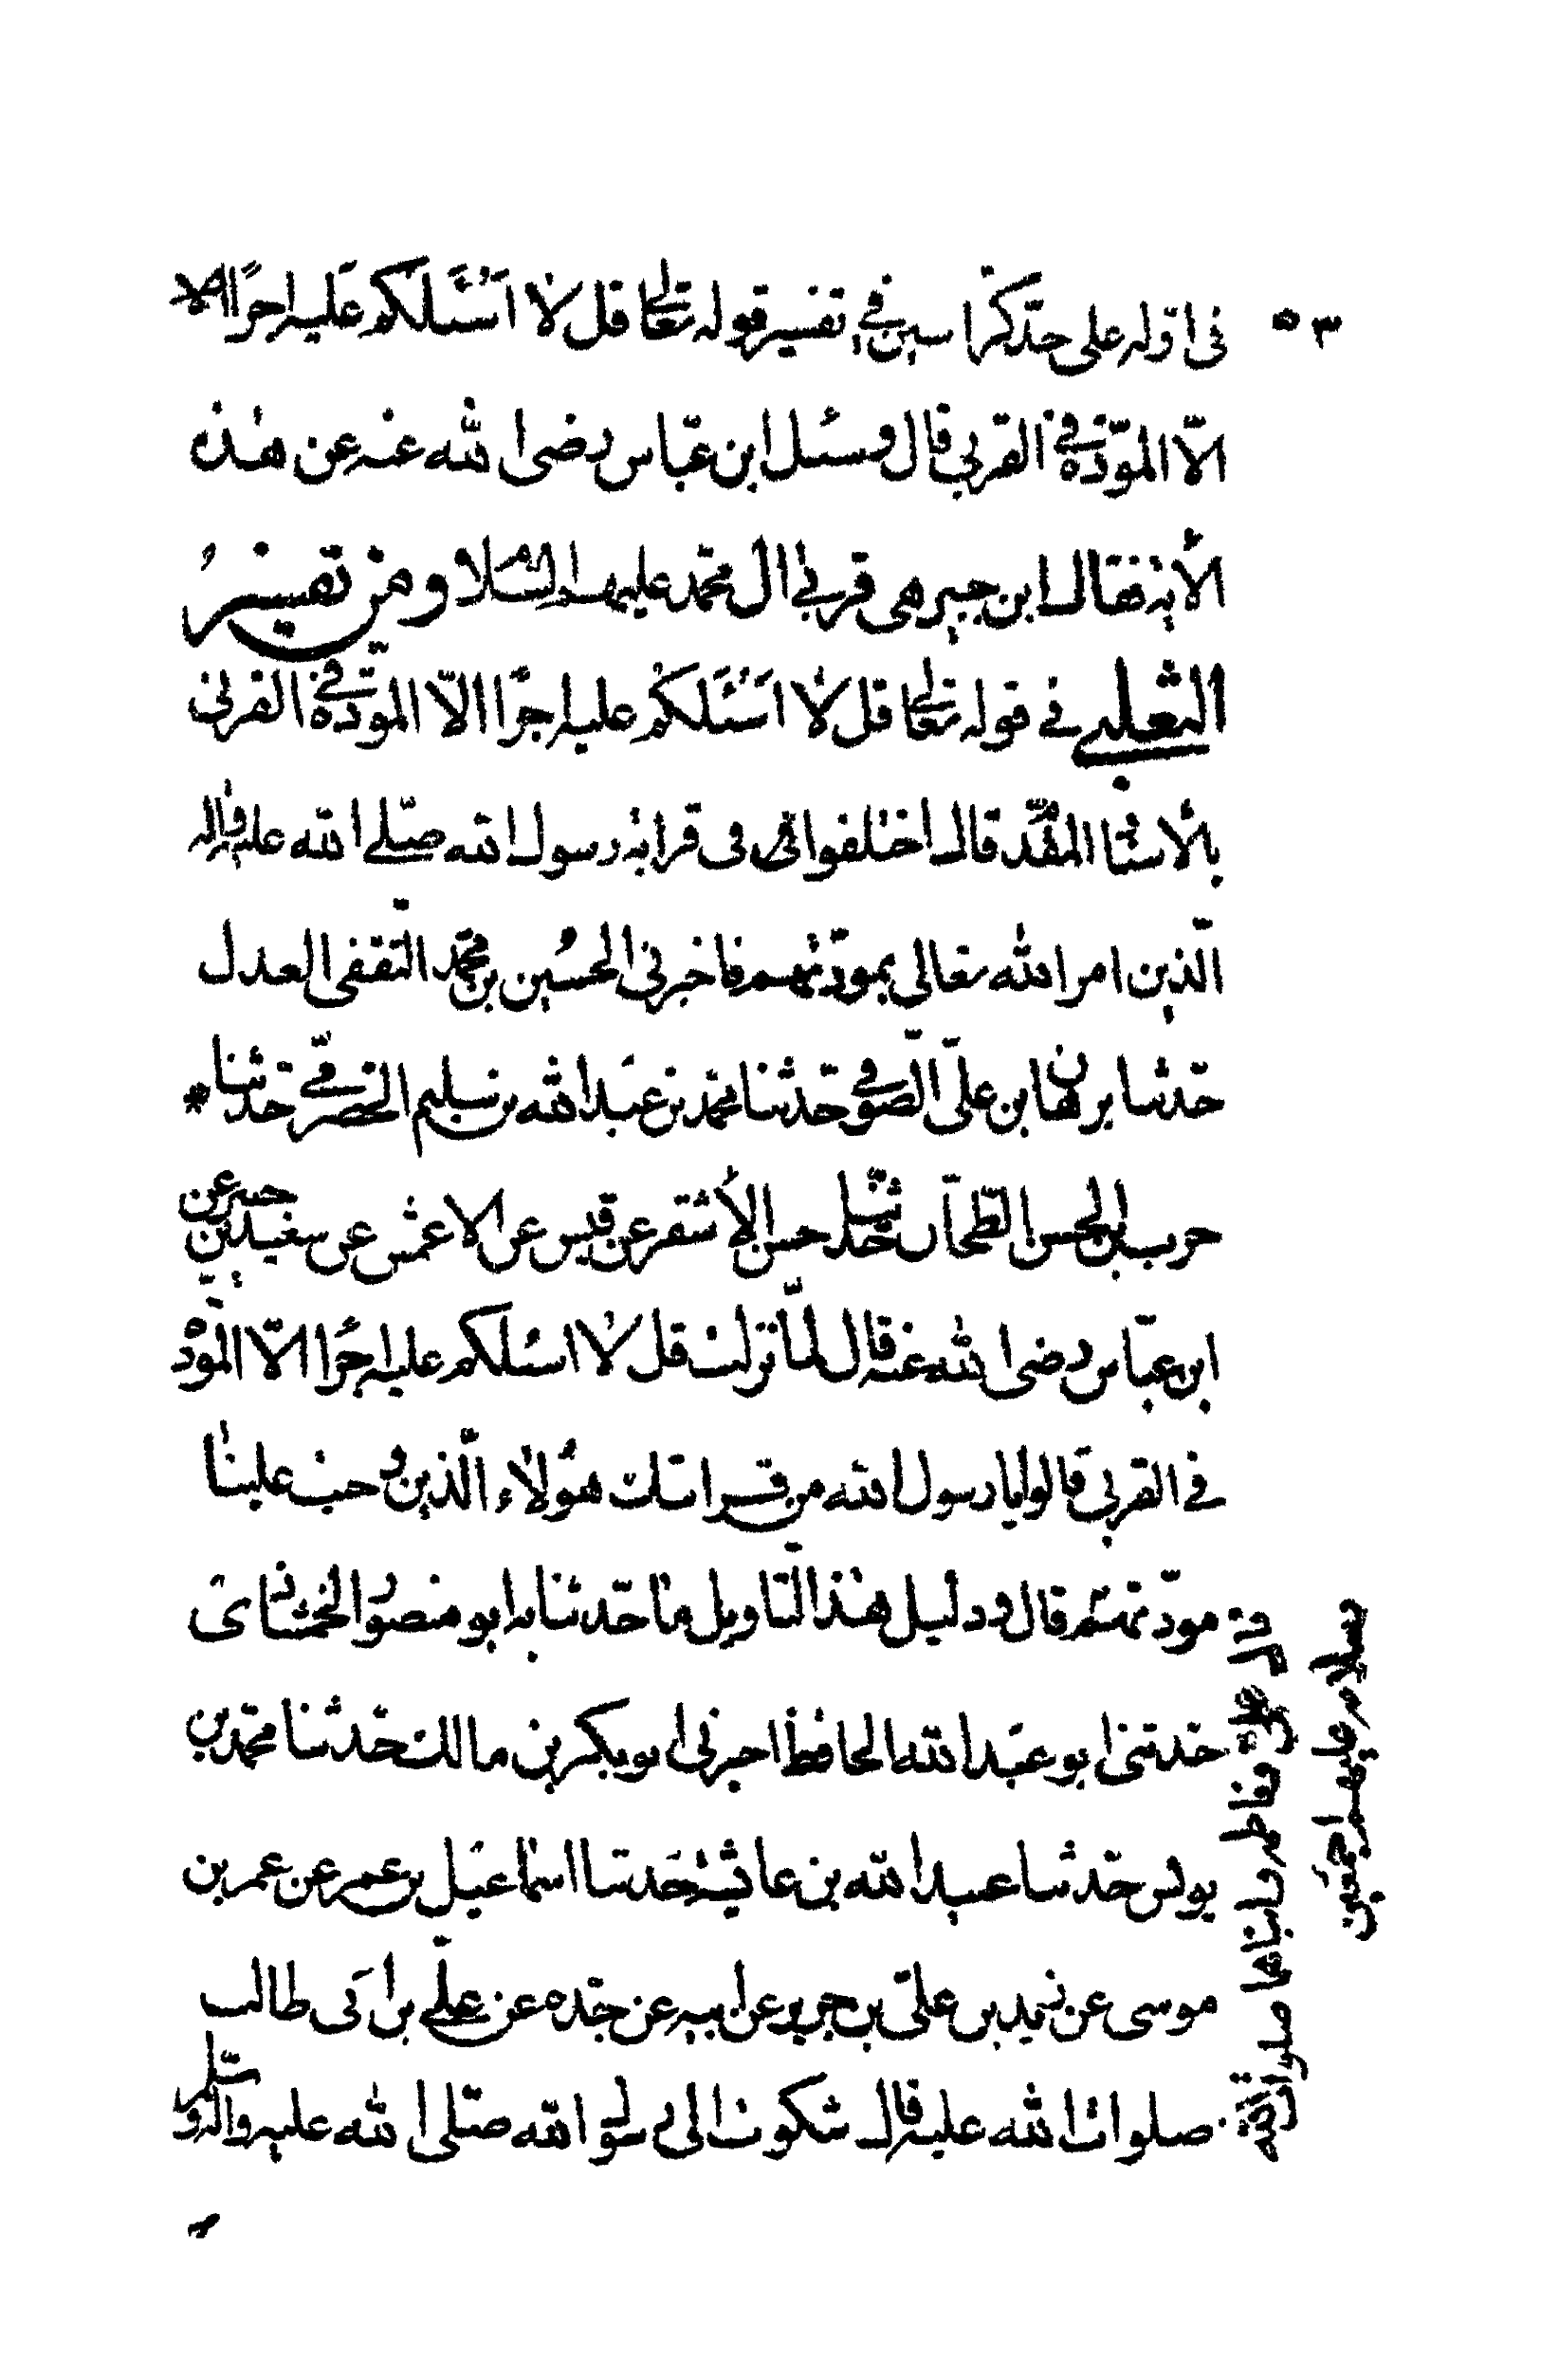 ٥٣
في اوله على حد كراسين في تفسير قوله تعالى قل لا اسئلكم عليه اجرًا الا
الّا المودّة في القربى قال وسئل ابن عبّاس رضى الله عنه عن هذه
الأية فقال ابن جبير هى قربى ال محمّد عليهم السّلام ومن تفسير
الثعلبي في قوله تعالى قل لا اَسْئَلكُم عليه اجرًا الّا المودّة في القربى
بالأسناد المقدّم قال اختلفوا في قرابة رسول الله صلّى الله عليه واله
الّذين امر الله تعالى بمودّتهم فاخبرنى الحسُين بن محمّد الثّقفى العدل
حدّثنا برهان بن علىّ الصّوفي حدّثنا محمّد بن عبد الله بن سليم الحضرمي حدّثنا
حرب بن الحسن الطّحّان حدّثنا حسين الأشقر عن قيس عن الاعمش عن سعيد بن جبير عن
ابن عبّاس رضى الله عنه قال لمّا نزلت قل لا اسئلكم عليه اجرًا الّا المودّة
في القربى قالوا يا رسول الله من قرابتك هؤلاء الّذين وجبت علينا
مودّتهم قال ودليل هذا التّاويل ما حدّثنا به ابو منصور الخمشاذى
حدّثنى ابو عبد الله الحافظ اخبرنى ابو بكر بن مالك حدّثنا محمّد بن
يونس حدّثنا عبيد الله بن عائشة حدّثنا اسماعيل بن عمر عن عمر بن
موسى عن زيد بن علىّ بن عن ابيه عن جدّه عن علّي بن ابى طالب
صلوات الله عليه قال شكوت الى رسول الله صلّى الله عليه واله وسلّم
قال علىّ وفاطمه وابناهما صلوات الله
وسلامه عليهم اجمعين